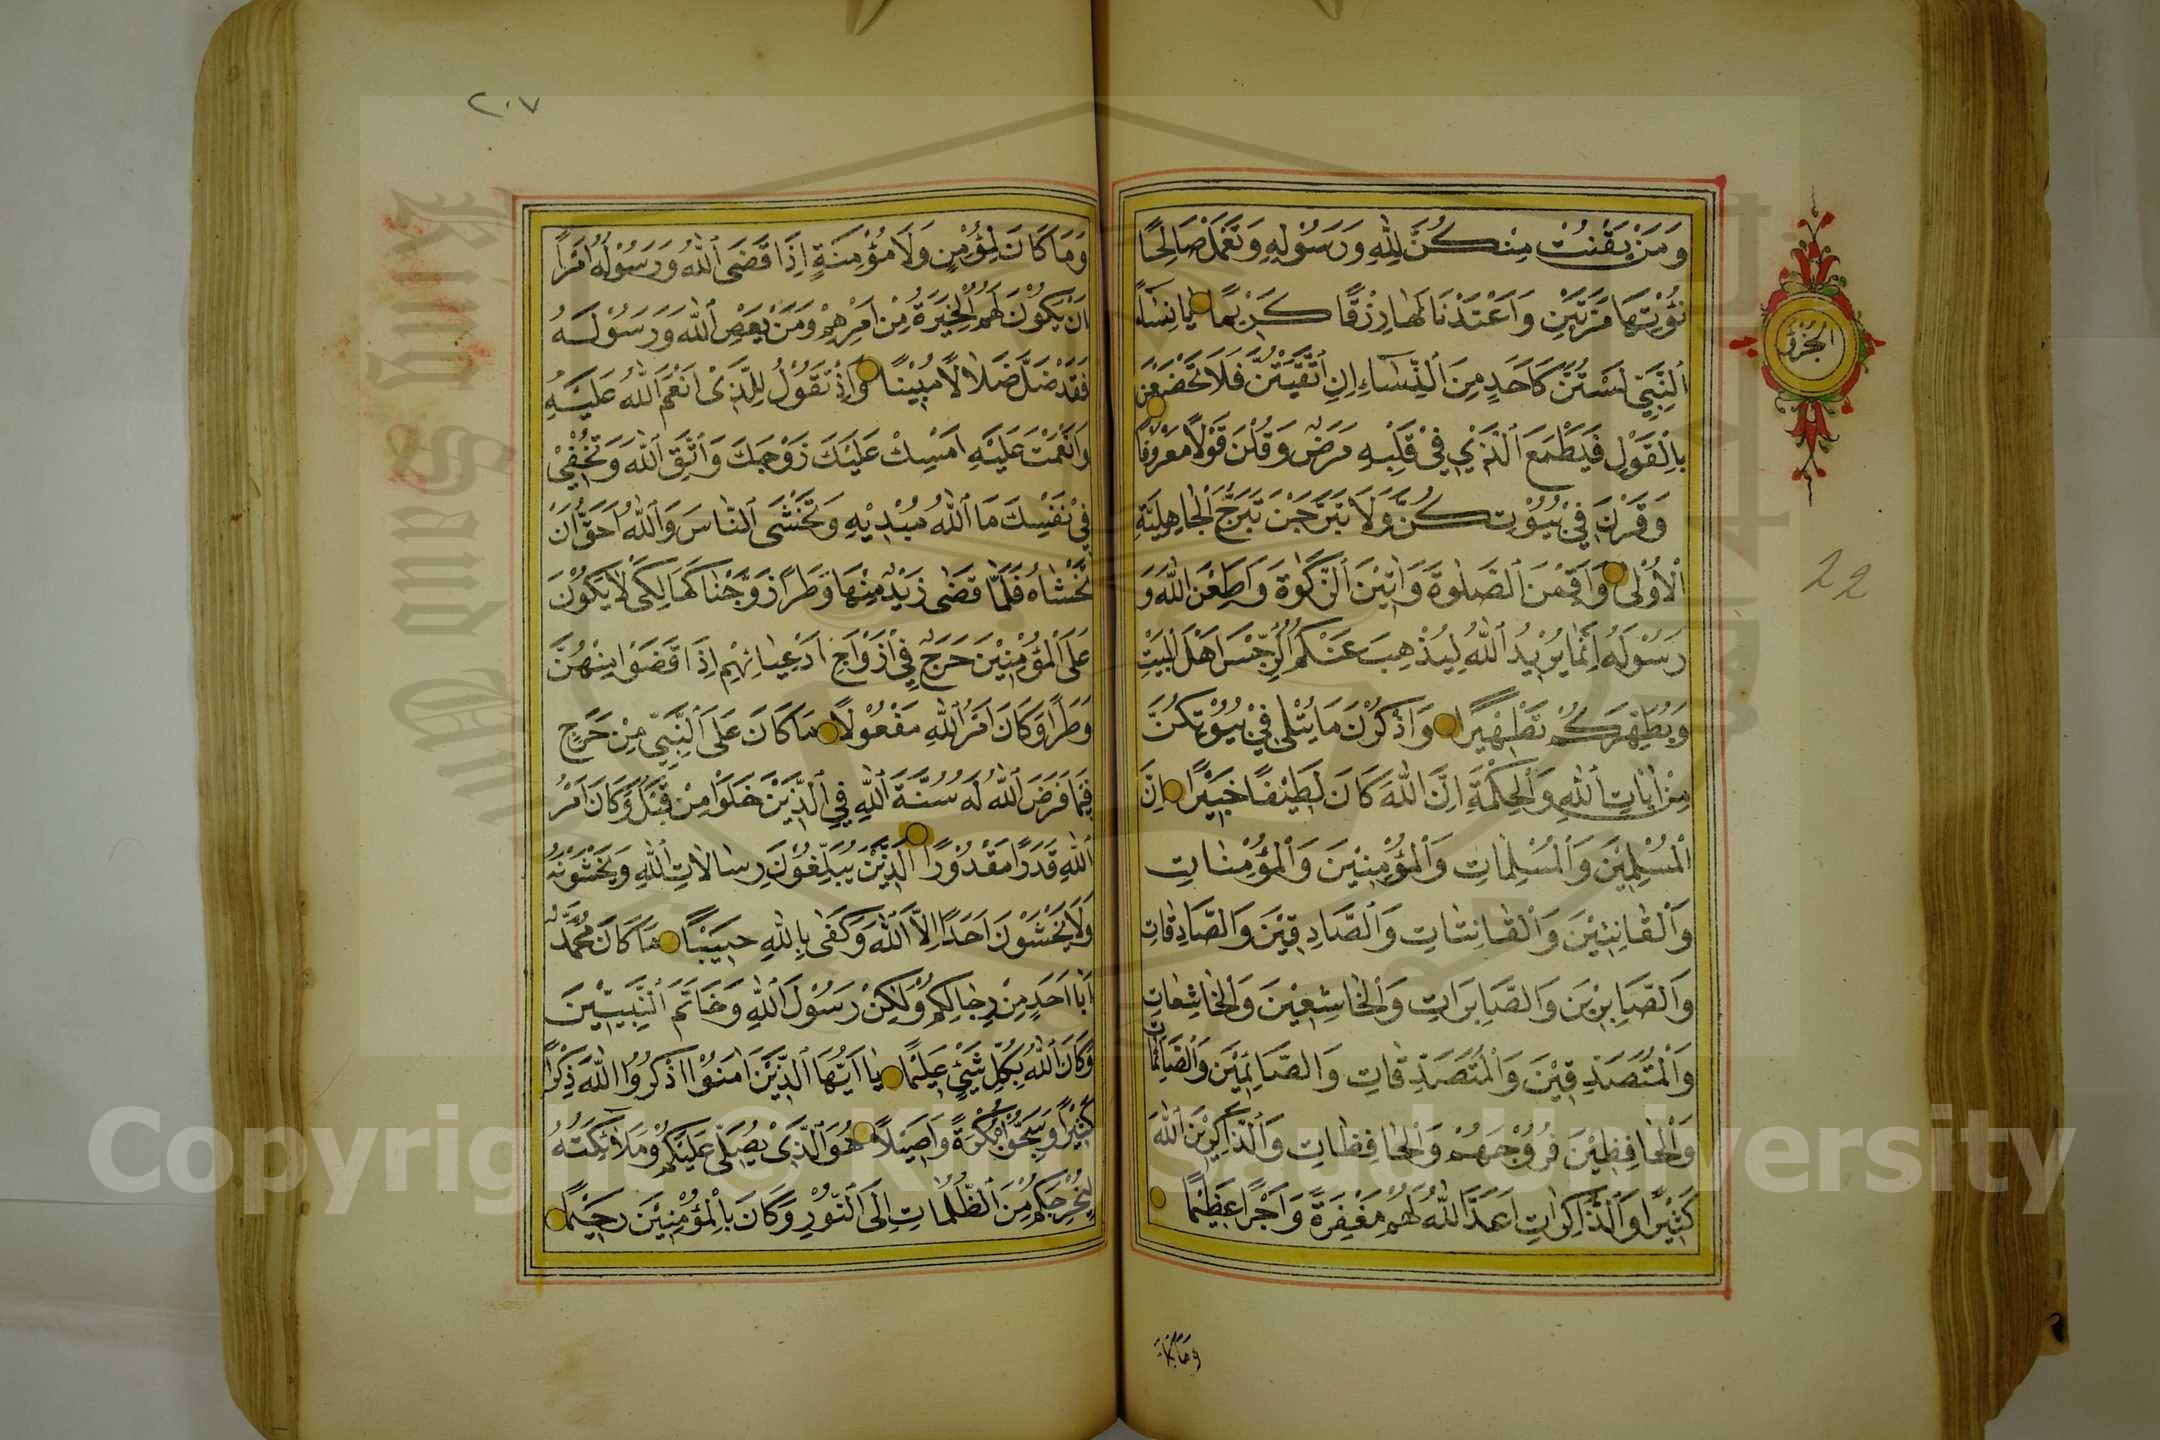 وَمَنْ يَقْنُتْ مِنْكُنَّ لِلّٰهِ وَرَسُوْلِهِ وَتَعْمَلْ صَالِحًا
نُؤْتِهَا مَرَّتَيْنِ وَاَعْتَدْنَا لَهَا رِزْقًا كَرِيْمًا يٰا نِسَاءَ
اَلنَّبِيِّ لَسْتُنَّ كَاَحَدٍ مِنَ اَلنِّسَاءِ اِنِ اتَّقَيْتُنَّ فَلَا تَخْضَعْنَ
بِاْلقَوْلِ فَيَطْمَعَ اَلَّذِيْ فِيْ قَلْبِهِ مَرَضٌ وَقُلْنَ قَوْلًا مَعْرُوْفًا
وَقَرْنَ فِيْ بُيُوْتِكُنَّ وَلَا تَبَرَّجْنَ تَبَرُّجَ اْلجَاهِلِيَّةِ
اْلاُوْلٰى وَاَقِمْنَ اَلصَّلٰوةَ وَاٰتِيْنَ اَلزَّكٰوةَ وَاَطِعْنَ اللّٰهَ وَ
رَسُوْلَهُ اِنَّمَا يُرِيْدُ اَللّٰهُ لِيُذْهِبَ عَنْكُمُ الرِّجْسَ اَهْلَ اْلبَيْتِ
وَيُطَهِّرَكُمْ تَطْهِيْرًا وَاذْكُرْنَ مَا يُتْلٰى فِيْ بُيُوْتِكُنَّ
مِنْ اٰيَاتِ اَللّٰهِ وَاْلحِكْمَةِ اِنَّ اللّٰهَ كَانَ لَطِيْفًا خَبِيْرًا اِنَّ
اْلمُسْلِمِيْنَ وَاْلمُسْلِمٰاتِ وَاْلمُؤْمِنِيْنَ وَاْلمُؤْمِنٰاتِ
وَاْلقَانِتِيْنَ وَاْلقَانِتَاتِ وَاَلصَّادِقِيْنَ وَالصَّادِقَاتِ
وَالصَّابِرِيْنَ وَالصَّابِرَاتِ وَاْلخَاشِعِيْنَ وَاْلخَاشِعَاتِ
وَاْلمُتَصَدِّقِيْنَ وَاْلمُتَصَدِّقَاتِ وَالصَّائِمِيْنَ وَالصَّائِمَاتِ
وَاْلحَافِظِيْنَ فُرُوْجَهُمْ وَاْلحَافِظَاتِ وَاَلذَّاكِرِيْنَ اَللّٰهَ
كَثِيْرًا وَاَلذَّاكِرَاتِ اَعَدَّ اللّٰهُ لَهُمْ مَغْفِرَةً وَاَجْرًا عَظِيْمًا
وَمَا كَانَ
الجزؤ
22
٢٠٧
وَمَا كَانَ لِمُؤْمِنٍ وَلَا مُؤْمِنَةٍ اِذَا قَضَى اَللّٰهُ وَرَسُوْلُهُ اَمْرًا
اَنْ يَكُوْنَ لَهُمُ اْلخِيَرَةُ مِنْ اَمْرِهِمْ وَمَنْ يَعْصِ اَللّٰهَ وَرَسُوْلَهُ
فَقَدْ ضَلَّ ضَلَالًا مُبِيْنًا وَاِذْ تَقُوْلُ لِلَّذِىْ اَنْعَمَ اَللّٰهُ عَلَيْهِ
وَاَنْعَمْتَ عَلَيْهِ اَمْسِكْ عَلَيْكَ زَوْجَكَ وَاتَّقِ اَللّٰهَ وَتُخْفِيْ
فِيْ نَفْسِكَ مَا اَللّٰهُ مُبْدِيْهِ وَتَخْشَى اَلنَّاسَ وَاَللّٰهُ اَحَقُّ اَنْ
تَخْشٰاهُ فَلَمَّا قَضٰى زَيْدٌ مِنْهَا وَطَرًا زَوَّجْنَاكَهَا لِكَىْ لَا يَكُوْنَ
عَلَى اْلمُؤْمِنِيْنَ حَرَجٌ فِيْ اَزْوَاجِ اَدْعِيَائِهِمْ اِذَا قَضَوْا مِنْهُنَّ
وَطَرًا وَكَانَ اَمْرُ اللّٰهِ مَفْعُوْلًا مَا كَانَ عَلَى اَلنَّبِيِّ مِنْ حَرَجٍ
فِيْمَا فَرَضَ اَللّٰهُ لَهُ سُنَّةَ اَللّٰهِ فِي اَلَّذِيْنَ خَلَوْا مِنْ قَبْلُ وَكَانَ اَمْرُ
اَللّٰهِ قَدَرًا مَقْدُوْرًا اَلَّذِيْنَ يُبَلِّغُوْنَ رِسَالَاتِ اَللّٰهِ وَيَخْشَوْنَهُ
وَلَا يَخْشَوْنَ اَحَدًا اِلَّا اَللّٰهَ وَكَفٰى بِاللّٰهِ حَسِيْبًا مَا كَانَ مُحَمَّدٌ
اَبَا اَحَدٍ مِنْ رِجَالِكُمْ وَلٰكِنْ رَسُوْلَ اَللّٰهِ وَخَاتَمَ اَلنَّبِيّٖنَ
وَكَانَ اَللّٰهُ بِكُلِّ شَيْءٍ عَلِيْمًا يٰا اَيُّهَا اَلَّذِيْنَ اٰمَنُوْا اذْكُرُوا اللّٰهَ ذِكْرًا
كَثِيْرًا وَسَبِّحُوْهُ بُكْرَةً وَاَصِيْلًا هُوَ اَلَّذِىْ يُصَلِّى عَلَيْكُمْ وَمَلَائِكَتُهُ
لِيُخْرِجَكُمْ مِنَ اَلظُّلُمَاتِ اِلَى اَلنُّوْرِ وَكَانَ بِاْلمُؤْمِنِيْنَ رَحِيْمًا
King Saud University
Copyright © King Saud University